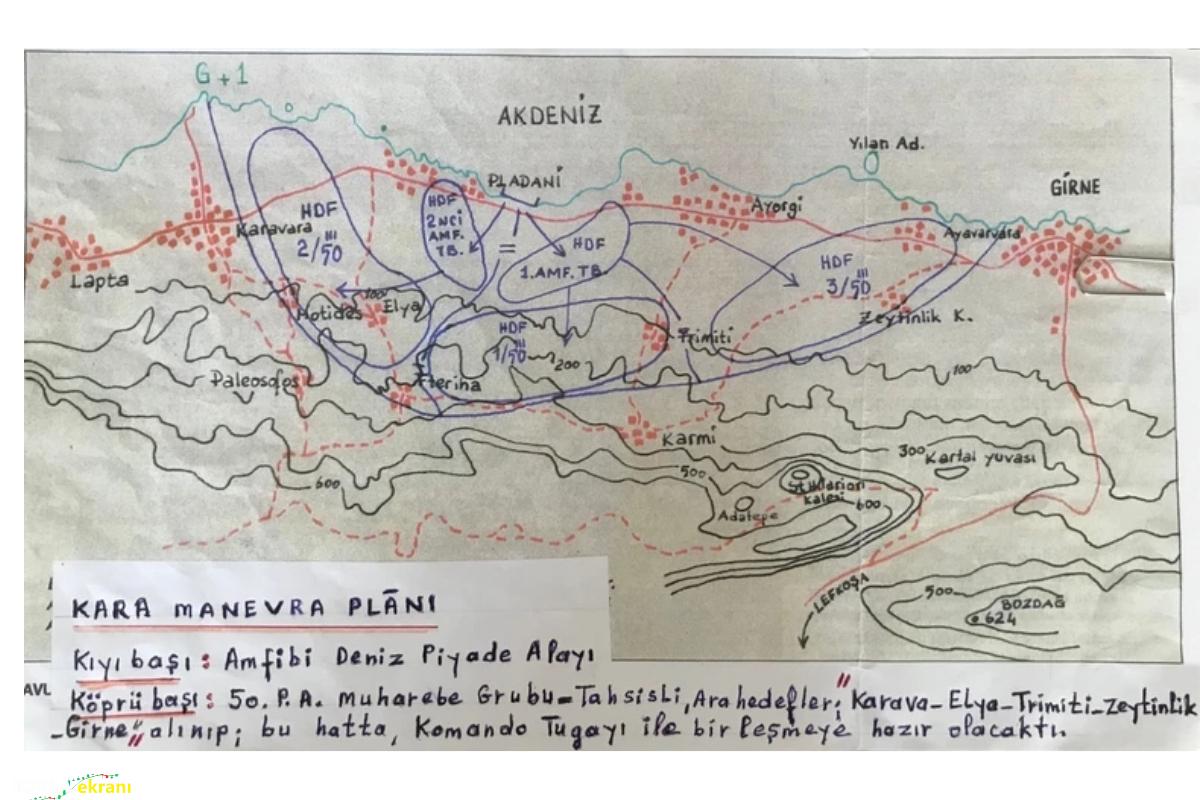 G+1
AKDENİZ
Yılan Ad.
PLADANİ
GİRNE
HDF
2/50
HDF
2 NCİ
AMF.
TB.
Ayorgi
Karavara
HDF
1. AMF. TB.
HDF
3/50
Ayavarvara
Lapta
100
Motides
Elya
Zeytinlik K.
HDF
1/50
Trimiti
200
100
Paleosofos
Fterina
Karmi
300
Kartal yuvası
500
600
St. Hilarion
Kalesi
600
Adatepe
LEFKOŞA
500
BOZDAĞ
624
KARA MANEVRA PLÂNI
Kıyı başı: Amfibi Deniz Piyade Alayı
AVL
Köprü başı: 50. P. A. Muharebe Grubu-Tahsisli, Ara hedefler; "Karava-Elya-Trimiti-Zeytinlik
-Girne" alınıp; bu hatta, Komando Tugayı ile birleşmeye hazır olacaktı.
ekranı